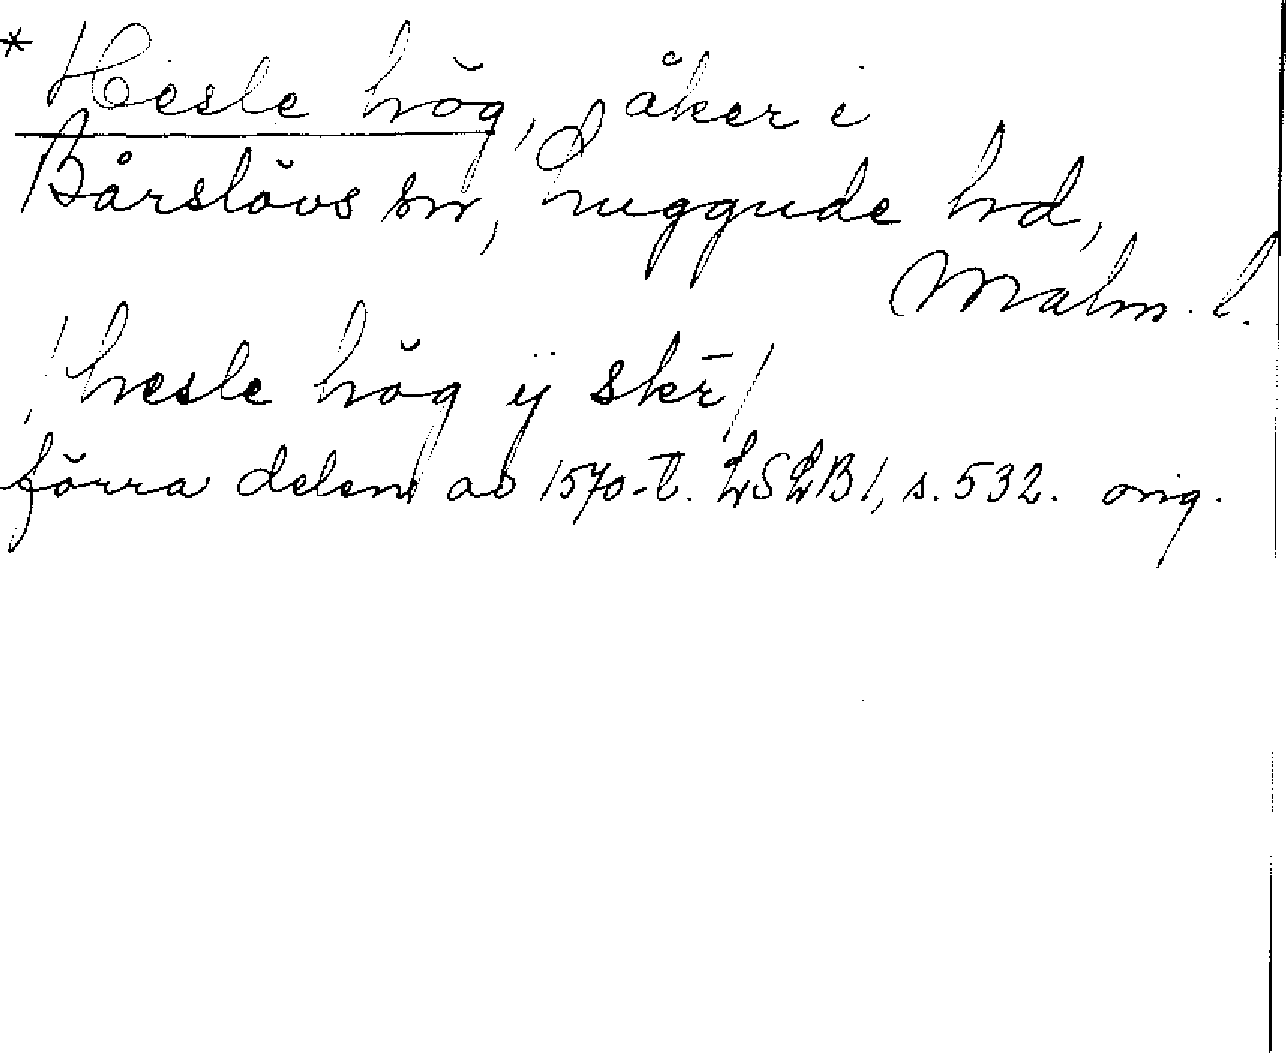 * Hesle hög, åker i
Bårslövs sn, Luggude hd,
Malm. l.
/hesle hög ÿ skē/
förra delen av 1570-t. LSLB 1, s. 532. orig.